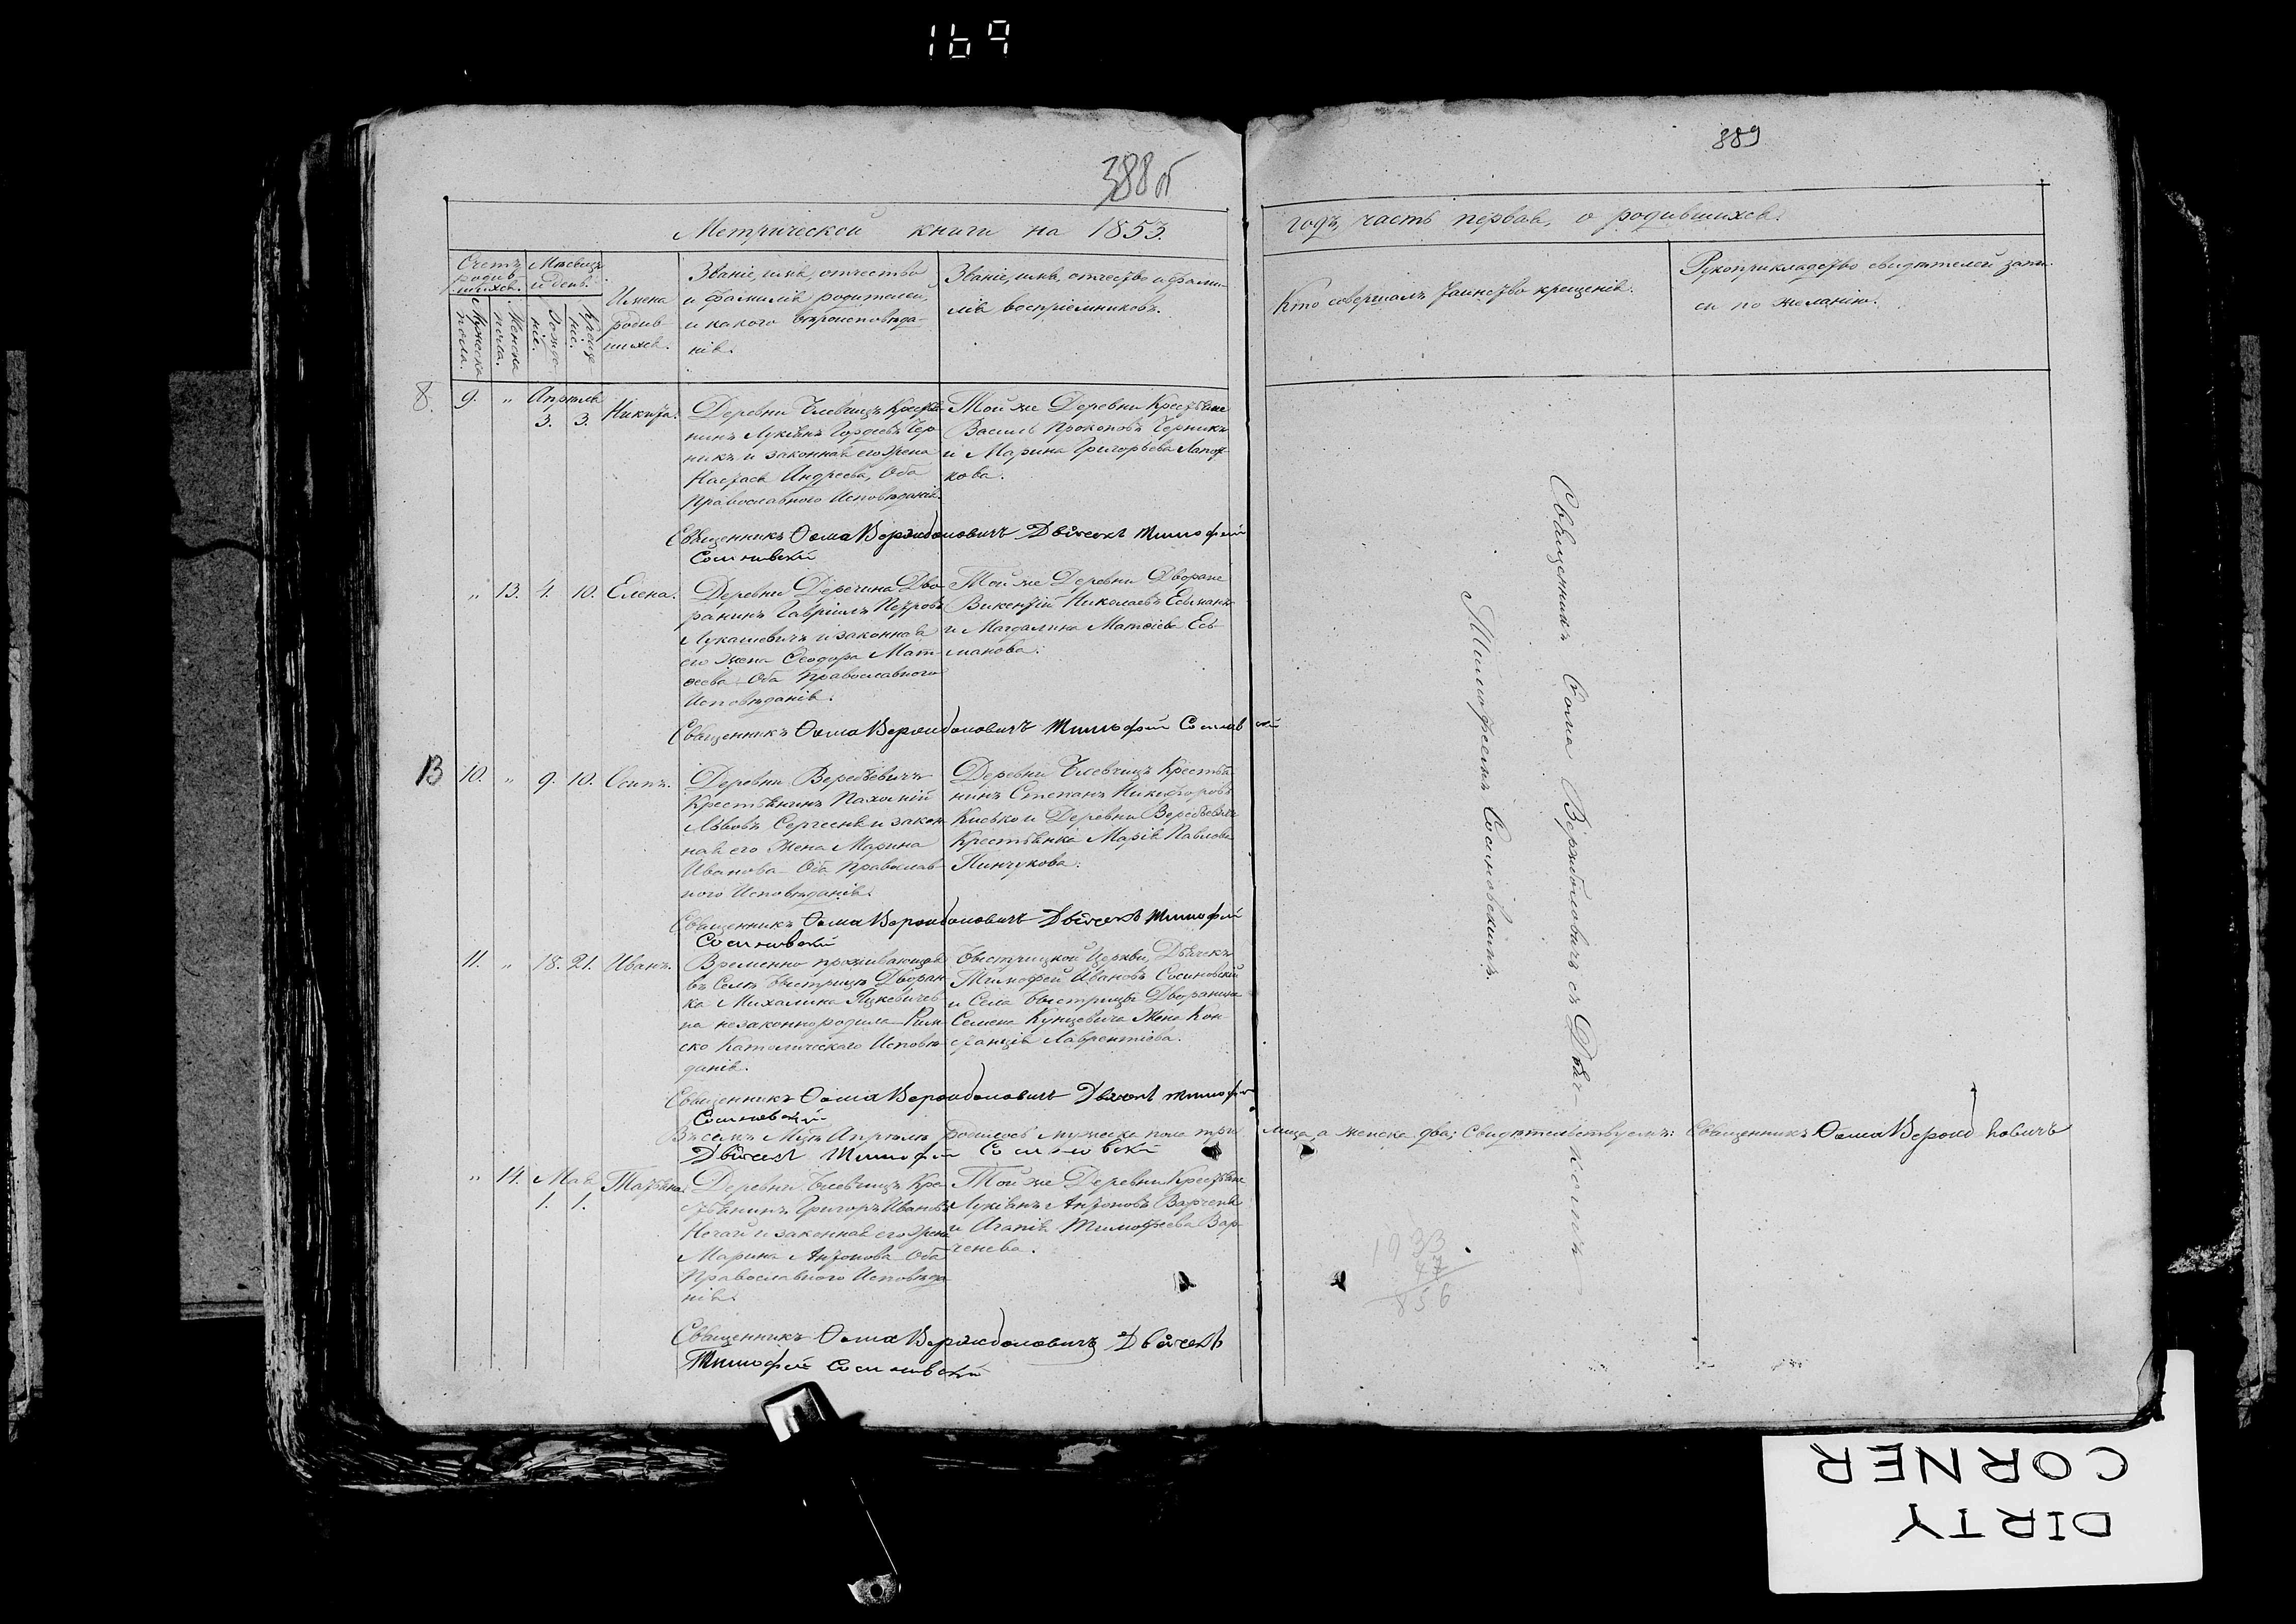 169
388 об
889
Метрической книги на 1853.
годъ, часть первая, о родившихся.
Счетъ родив-шихся.
Мѣсяцъ и день.
Мужеска пола.
Женска пола.
Рожде-ніе.
Креще-ніе.
Имена родив-шихся.
Званіе, имя, отчество
и фамилія родителей,
и какого вѣроисповѣда-
нія.
Званіе, имя, отчество и фами-
лія воспріемниковъ.
Кто совершалъ таинство крещенія.
Рукоприкладство свидѣтелей запи-
си по желанію.
8.
9. " Апрѣля 3. 3. Никита.
Деревни Крестья-
нинъ Лукіянъ Гордѣевъ Чер-
никъ и законная его жена
Настася Андреева, Оба
Православного Исповѣданія.
Той же Деревни Крестьяне
Василь Прокоповъ Черникъ
и Марина Григорьева Лапот-
кова.
Священникъ Ѳома Вержболовичъ Дьячекъ Тимофей
Сосиновскій
" 13. 4. 10. Елена.
Деревни Деречина Дво-
ранинъ Гавріилъ Петровъ
Лукашевичъ и законная
его жена Ѳеодора Мат-
ѳеева Оба Православного
Исповѣданія.
Той же Деревни Дворане
Викентій Николаевъ Есьманъ
и Магдалина Матѳіева Есь-
манова.
Священникъ Ѳома Вержболовичъ Тимофей Сосиновскій
13
10. " 9. 10. Осипъ.
Деревни Веребьевичъ
Крестьянинъ Пахомій
Львовъ Сергееня и закон-
ная его Жена Марина
Иванова Оба Православ-
ного Исповѣданія.
Деревни Крестья-
нинъ Степанъ Никифоровъ
Кисько и Деревни Веребьевичъ
Крестьянка Марія Павлова
Пинчукова.
Священникъ Ѳома Вержболовичъ Дьячекъ Тимофей
Сосиновскій
11. " 18. 21. Иванъ.
Временно проживающая
въ Селѣ Быстрицѣ Дворан-
ка Михалина Яцкевичев-
на незаконно родила Рим-
ско Католическаго Исповѣ-
данія.
Быстрицкой Церкви, Дьячекъ
Тимофей Ивановъ Сосиновскій
и Села Быстрицы Дворанина
Семена Кунцевича Жена Кон-
станція Лаврентіева.
Священникъ Ѳома Вержболовичъ Дьячекъ Тимофей
Сосиновскій
Въ семъ Мцѣ Апрѣлѣ родилось мужеска пола три лица, а женска два; Свидѣтельствуемъ: Священникъ Ѳома Вержболовичъ
Дьячекъ Тимофей Сосиновскій
" 14. Мая 1. 1. Татьяна.
Деревни Кре-
стьянинъ Григоръ Ивановъ
Нечай и законная его жена
Марина Антонова Оба
Православного Исповѣда-
нія.
Той же Деревни Крестьяне
Лукіянъ Антоновъ Варченя
и Агапія Тимофеева Вар-
ченева.
Священникъ Ѳома Вержболовичъ Дьячекъ
Тимофей Сосиновскій
Священникъ Ѳома Вержболовичъ съ Дьяч-комъ
Тимофеемъ Сосиновскимъ.
1933
47
856
DIRTY
CORNER